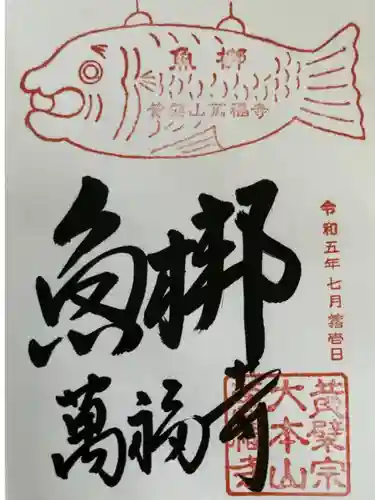 魚梆
黄檗山萬福寺
令和五年七月拾壱日
魚梆
萬福寺
黄檗宗
大本山
萬福寺